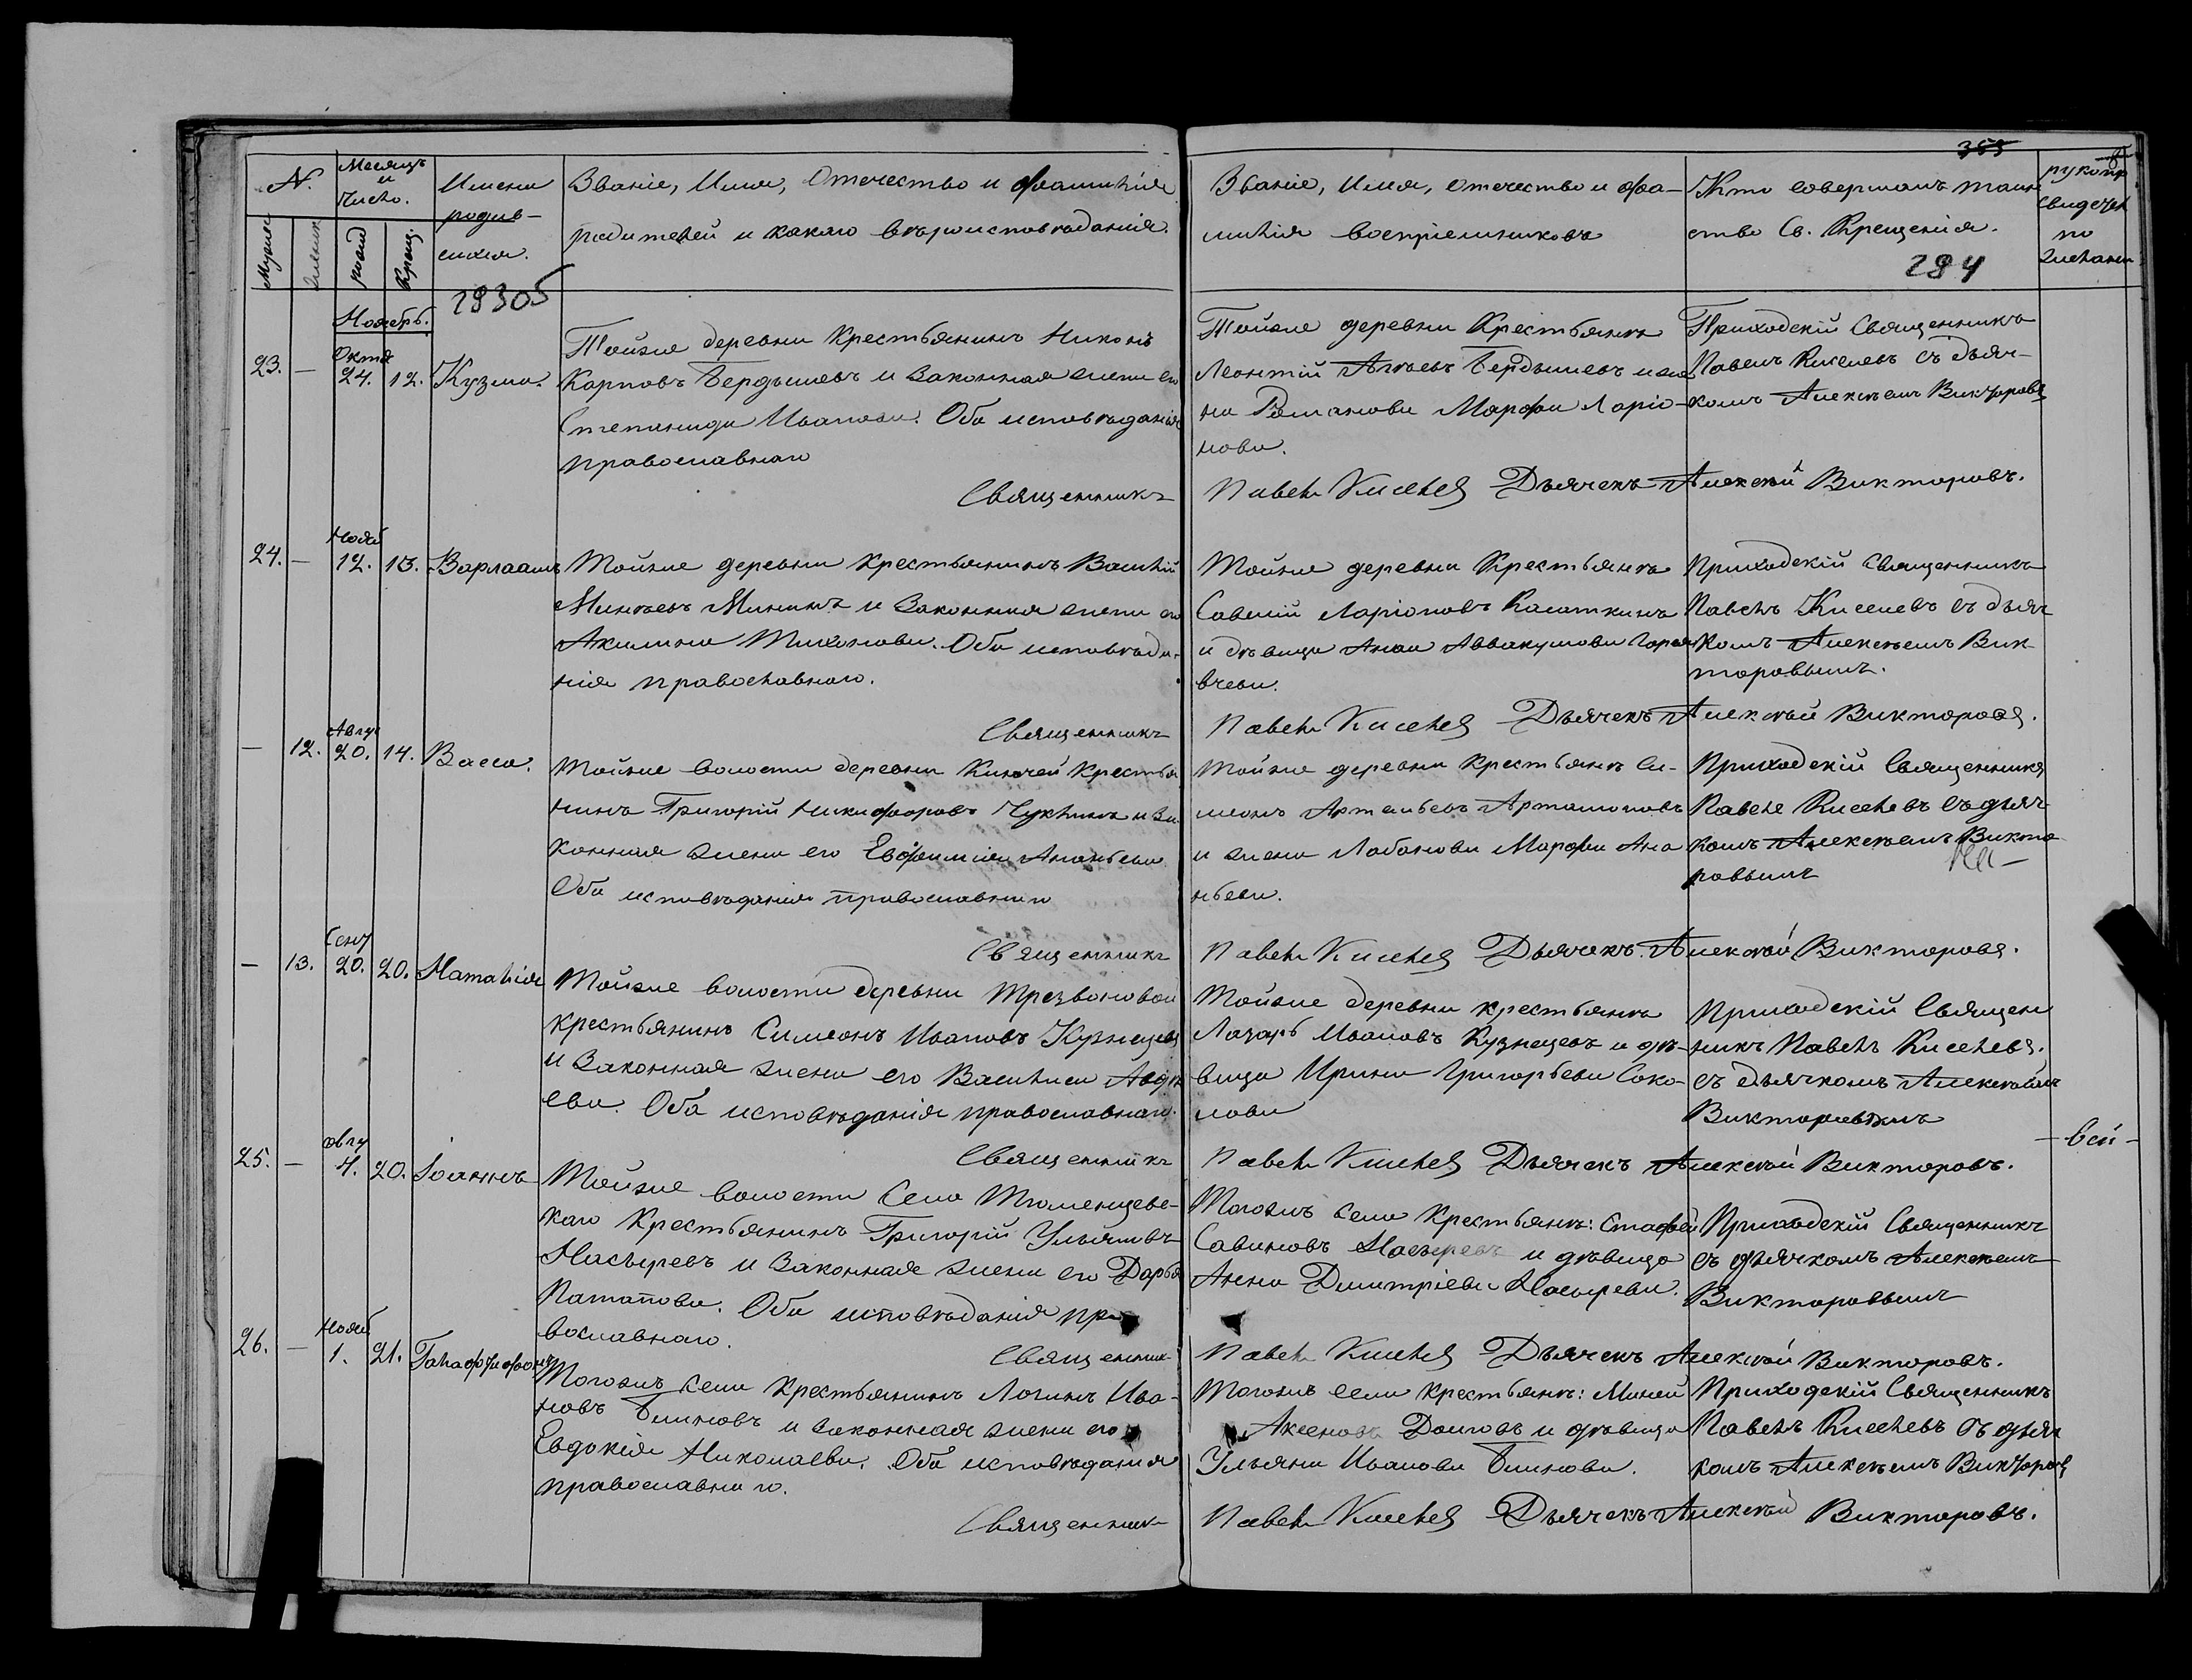 N.
Месяцъ
и
Число.
Имена
родив-
шихся.
Званіе, Имя, Отечество и фамилія
родителей и какаго вѣроисповѣданія.
Мужеск
рожд
Крещ.
28305
Званіе, имя, отечество и фа-
милія воспріемниковъ
Кто совершалъ таин
ство Св. Крещенія.
рукопр
свидетел
по
желанію
353
284
Ноябрь.
23. —
Октя
24. 12. Кузма.
Тойже деревни Крестьянинъ Никонъ
Карповъ Бердышевъ и Законная жена его
Степанида Иванова. Оба исповѣданія
православнаго
Священникъ
Тойже деревни Крестьянѣ
Леонтій Бердышевъ и же
на Романова Марфа Ларіо-
нова.
Павелъ Киселев Дьячекъ Алексѣй Викторовъ.
Приходскій Священникъ
Павелъ Киселевъ съ дьяч-
комъ Алексѣемъ Викторовы
24. —
Нояб
12. 13. Варлаамъ
Тойже деревни Крестьянинъ Василій
Минѣевъ Мининъ и Законная жена его
Акилина Тихонова. Оба исповѣда-
нія православнаго.
Священникъ
Тойже деревни Крестьянѣ
Савелій Ларіоновъ Касаткинъ
и дѣвица Анна Аввакумова Горя
вчева.
Павелъ Киселев Дьячекъ Алексѣй Викторовъ.
Приходскій Священникъ
Павелъ Киселевъ съ дьяч
комъ Алексѣемъ Вик
торовымъ.
— 12.
Авгу
20. 14. Васса.
Тойже волости деревни Ключей Крестья
нинъ Григорій Никифоровъ Чуклинъ и За
конная жена его Евфимія Ананьева
Оба исповѣданія православнаго
Священникъ
Тойже деревни Крестьянѣ Си-
меонъ Артемьевъ Артамоновъ
и жена Лабанова Марфа Ана
ньева.
Павелъ Киселев Дьячекъ Алексѣй Викторовъ.
Приходскій Священникъ
Павелъ Киселевъ съ дьяч
комъ Алексѣемъ Викто
ровымъ
— 13.
Сент
20. 20. Наталія
Тойже волости деревни Трезвоновой
крестьянинъ Симеонъ Ивановъ Кузнецовъ
и Законная жена его Василиса Авдѣ
ева. Оба исповѣданія православнаго.
Священникъ
Тойже деревни крестьянѣ
Лазарь Ивановъ Кузнецовъ и дѣ-
вица Ирина Григорьева Соко-
лова
Павелъ Киселев Дьячекъ Алексѣй Викторовъ.
Приходскій Священ
никъ Павелъ Киселевъ.
съ дьячкомъ Алексѣемъ
Викторовымъ
— вей —
25. —
Авгу
4. 20. Іоаннъ
Тойже волости Села Тюменцевс-
каго Крестьянинъ Григорій Ульяновъ
Насыревъ и Законная жена его Дарья
Патапова. Оба исповѣданія пра
вославнаго.
Священник
Тогожъ села Крестьянѣ: Стафей
Савиновъ Насыревъ и дѣвица
Анна Дмитріева Насырева.
Павелъ Киселев Дьячекъ Алексѣй Викторовъ.
Приходскій Священникъ
съ дьячкомъ Алексѣемъ
Викторовымъ
26. —
Нояб
1. 21. Галафтифонъ
Тогожъ села Крестьянинъ Логинъ Ива-
новъ Блиновъ и законная жена его
Евдокія Николаева. Оба исповѣданія
православнаго.
Священник
Тогожъ села крестьянѣ: Миней
Аксеновъ Долговъ и дѣвица
Ульяна Иванова Блинова.
Павелъ Киселев Дьячекъ Алексѣй Викторовъ.
Приходскій Священникъ
Павелъ Киселевъ съ дьяч
комъ Алексѣемъ Викторов